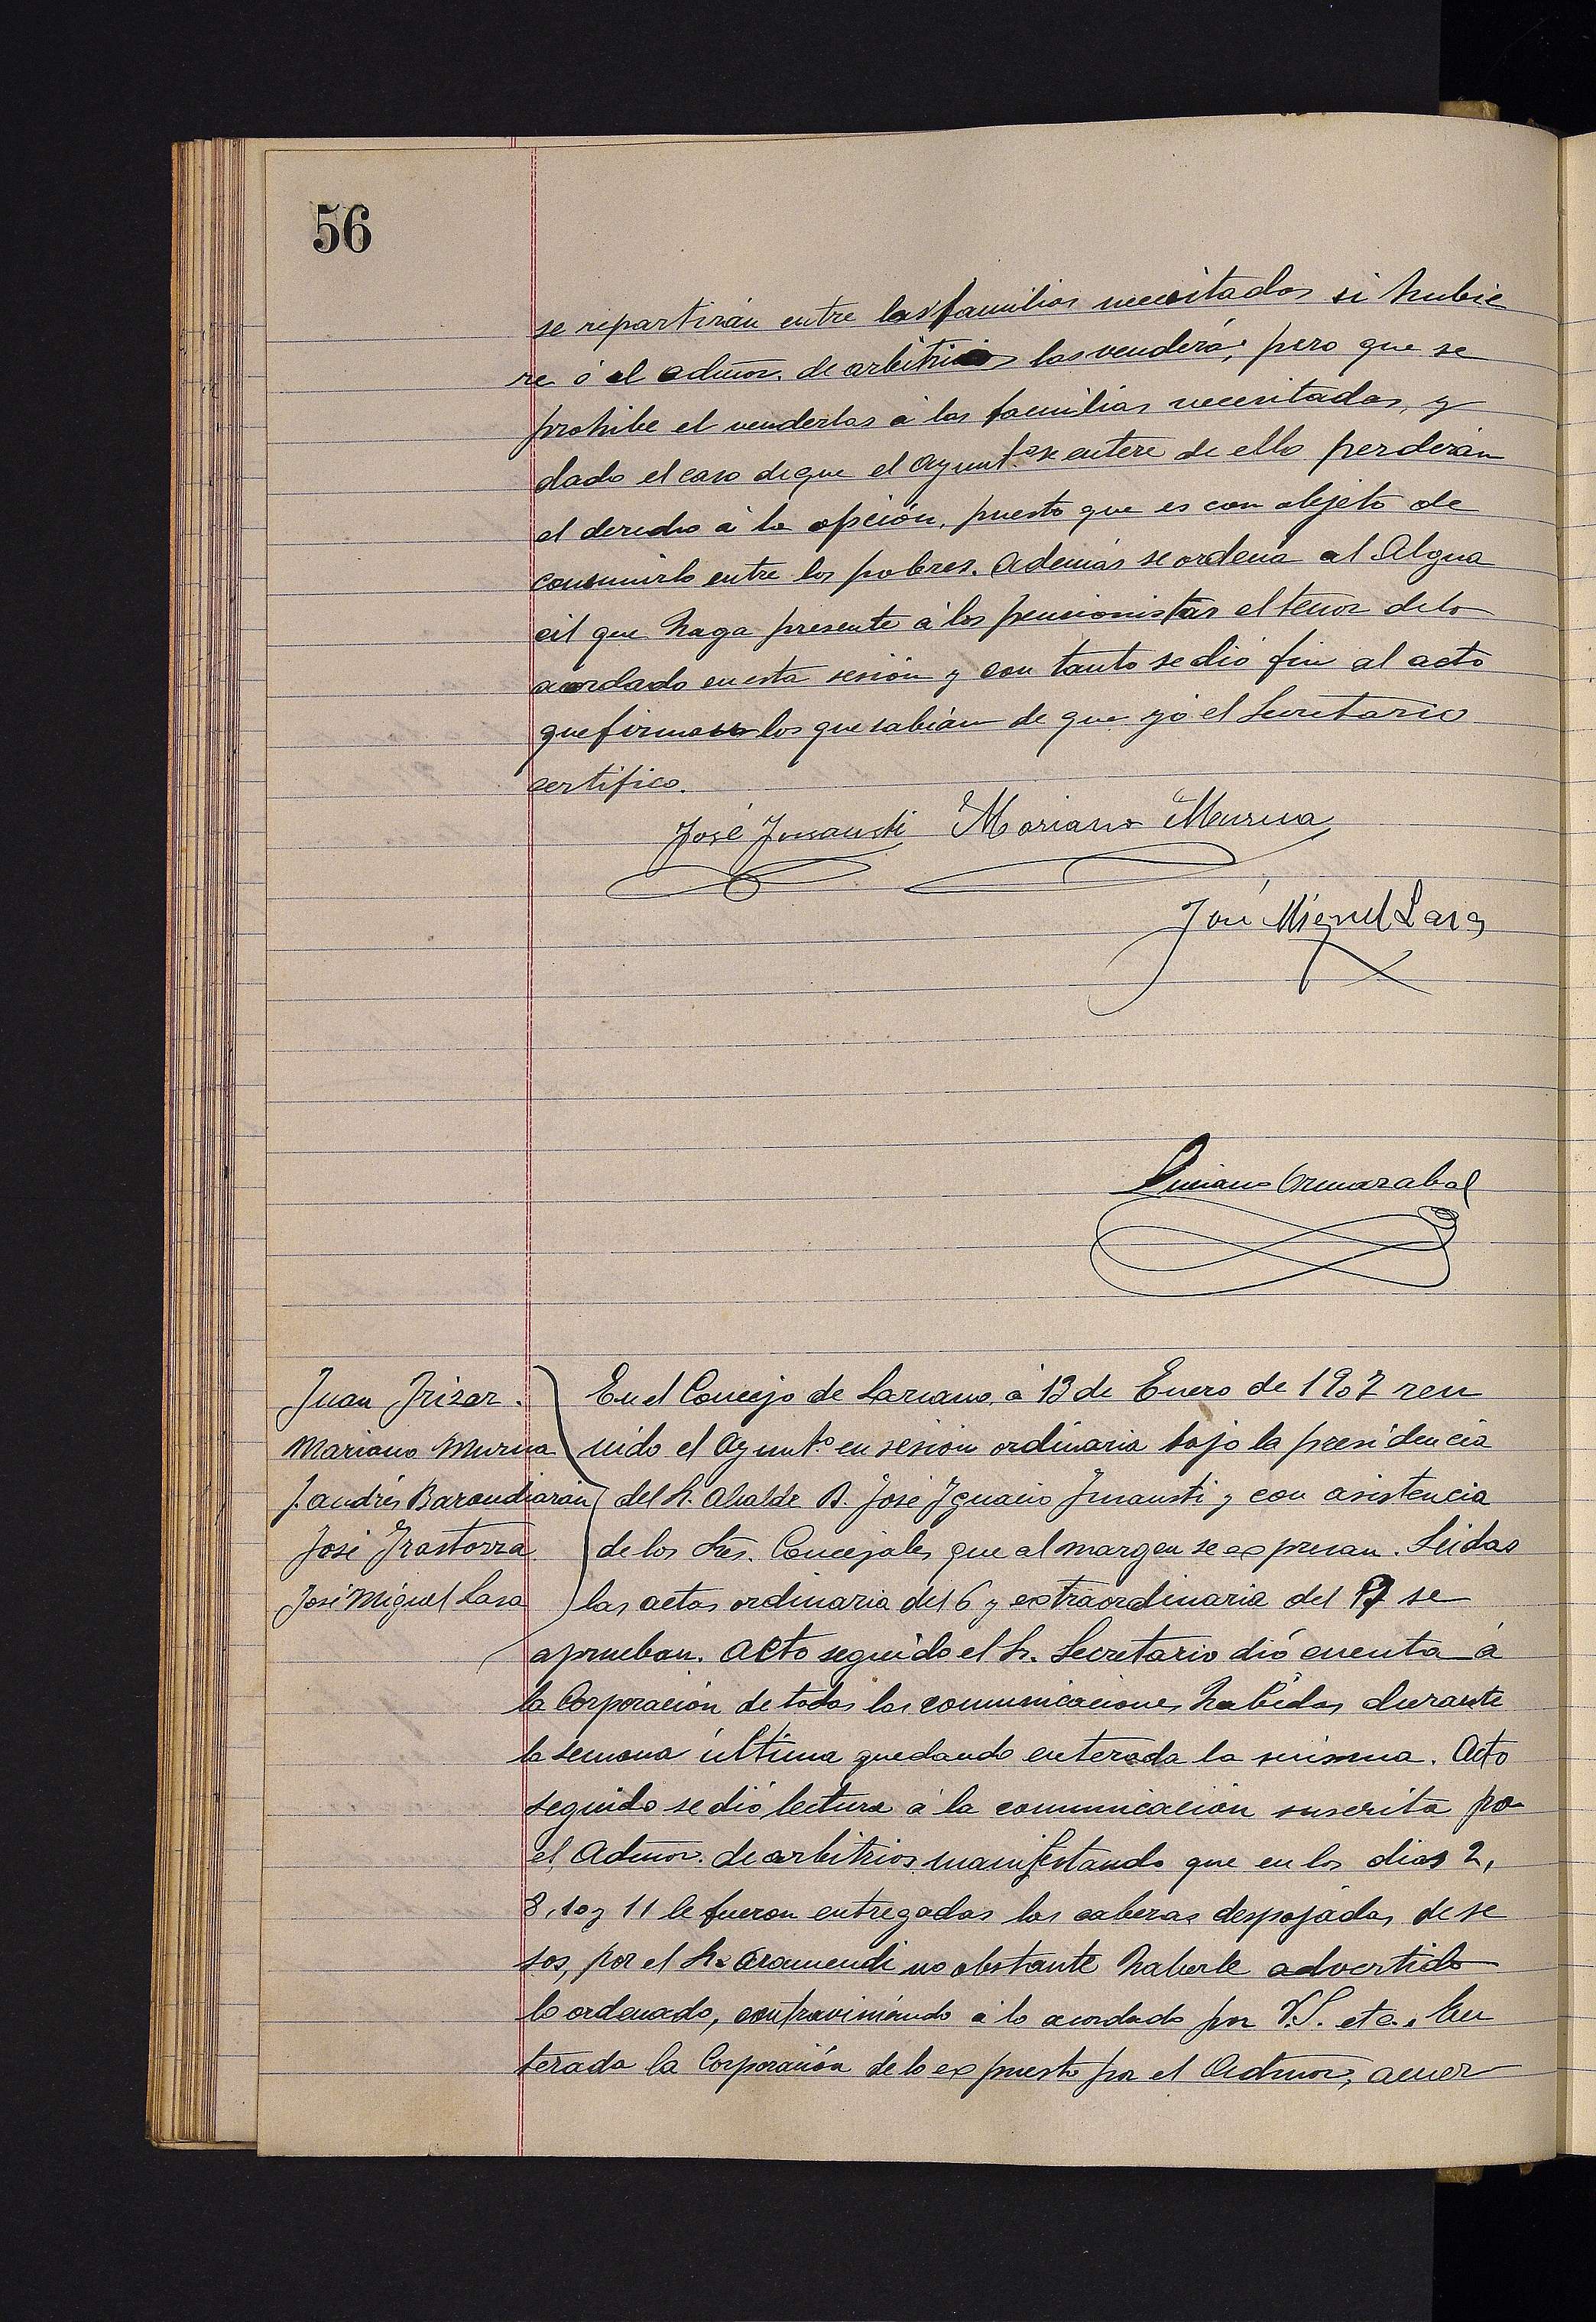 56
se repartirán entre las familias necesitadas si hubie
re ó el admor. de arbitrios las venderá; pero que se
prohibe el venderlas á las familias necesitadas, y
dado el caso de que el Ayunt.º se entere de ello perderán
el derecho á la opción, puesto que es con objeto de
consumirlo entre los pobres. Además se ordena al Algua
cil que haga presente á los pensionistas el tenor de lo
acordado en esta sesión y con tanto se dió fin al acto
que firman los que sabián de que yó el Secretario
certifico.
José Insausti Mariano Murua
José Miguel Lasa
Luciano Ormazabal
Juan Irizar.
Mariano Murua
J. Andrés Barandiarán
José Irastorza
José Miguel Lasa
En el Concejo de Lazcano, á 13 de Enero de 1907 reu
nido el Ayunt.º en sesión ordinaria bajo la presidencia
del Sr. Alcalde D. José Ignacio Insausti y con asistencia
de los Sres. Concejales que al margen se expresan. Leidas
las actas ordinaria del 6 y extraordinaria del 7 se
aprueban. Acto seguido el Sr. Secretario dió cuenta á
la Corporación de todas las comunicaciones habidas durante
la semana última quedando enterada la misma. Acto
seguido se dió lectura á la comunicación suscrita por
el Admor. de arbitrios manifestando que en los dias 2,
8, 10 y 11 le fueron entregadas las cabezas despojadas de se
sos, por el Sr. Aramendi no obstante haberle advertido
lo ordenado, contraviniendo á lo acordado por V.S. etc. En
terada la Corporación de lo expuesto por el Admor, acuer